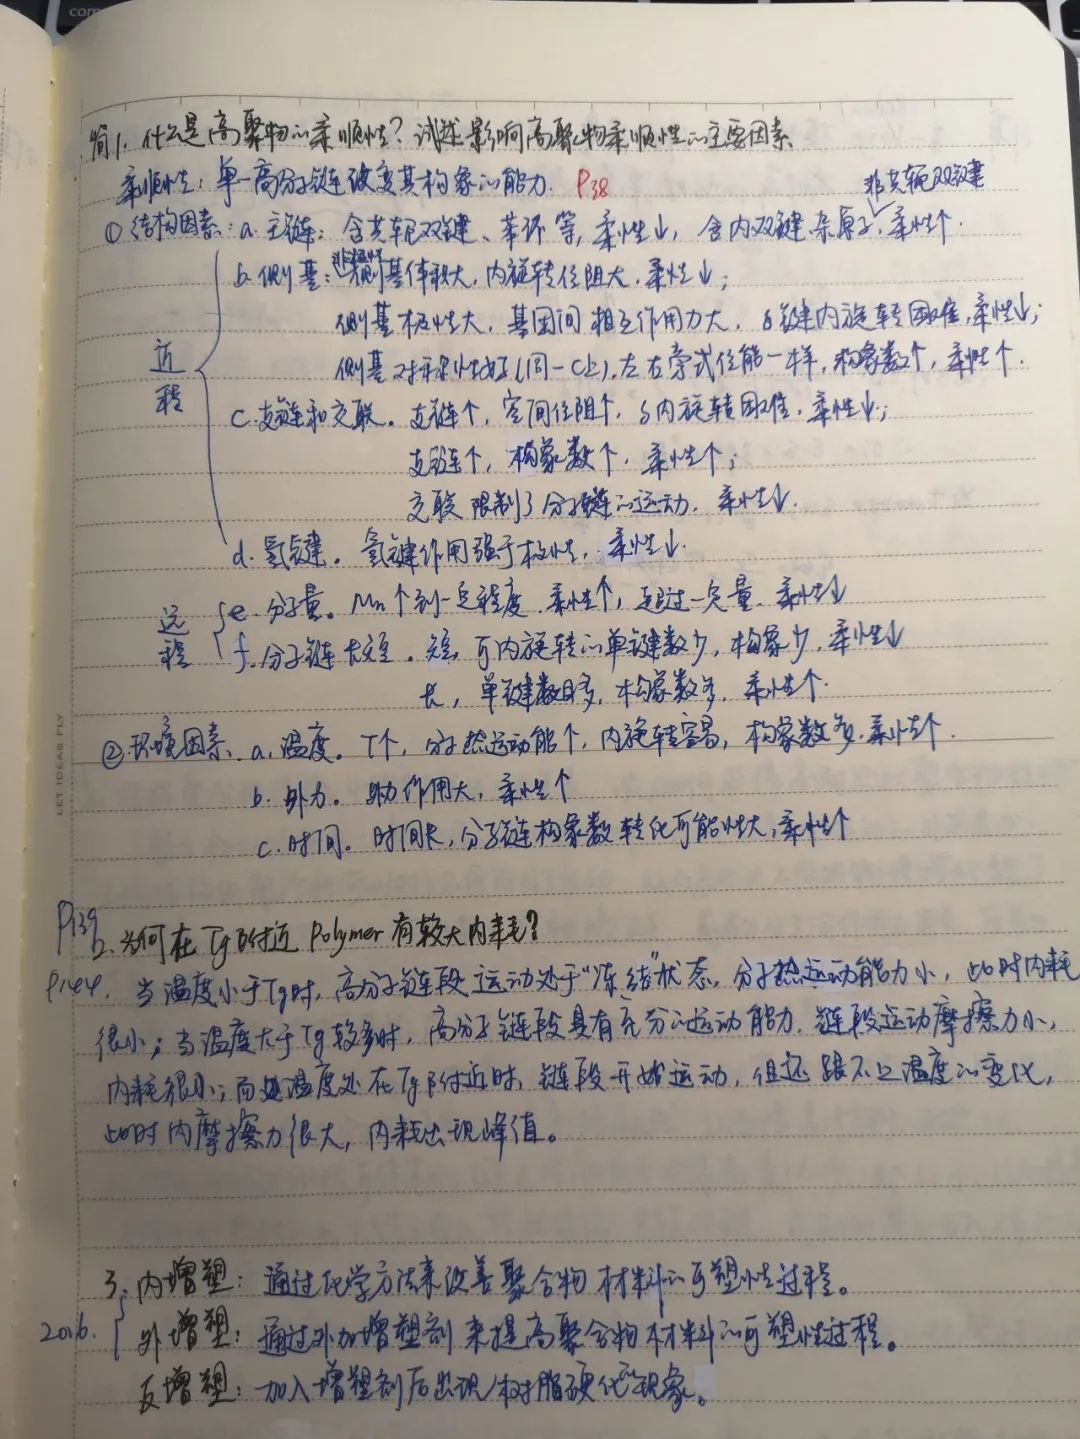 com
简1. 什么是高聚物的柔顺性？试述影响高聚物柔顺性的主要因素
柔顺性：单一高分子链改变其构象的能力. P38
非共轭双键
① 结构因素：a. 主链：含共轭双键、苯环等, 柔性↓, 含内双键.杂原子, 柔性↑.
b. 侧基：非极性侧基体积大, 内旋转位阻大, 柔性↓；
侧基极性大, 基团间相互作用力大, δ键内旋转困难, 柔性↓；
侧基对称性好(同一C上), 左右旁式位能一样, 构象数↑, 柔性↑.
近程
c. 支链和交联. 支链↑, 空间位阻↑, δ内旋转困难, 柔性↓；
支链↑, 构象数↑, 柔性↑；
交联限制了分子链的运动, 柔性↓.
d. 氢键. 氢键作用强于极性, 柔性↓.
远程
e. 分子量. Mn↑到一定程度, 柔性↑, 超过一定量, 柔性↓
f. 分子链长短. 短, 可内旋转的单键数少, 构象少, 柔性↓
长, 单键数目多, 构象数多, 柔性↑.
② 环境因素. a. 温度. T↑, 分子热运动能↑, 内旋转容易, 构象数多, 柔性↑.
b. 外力. 外力作用大, 柔性↑
c. 时间. 时间长, 分子链构象数转化可能性大, 柔性↑
LET IDEAS FLY
P139
2. 为何在Tg附近Polymer有较大内耗？
P144. 当温度小于Tg时, 高分子链段运动处于“冻结”状态, 分子热运动能力小, 此时内耗
很小；当温度大于Tg较多时, 高分子链段具有充分的运动能力, 链段运动摩擦力小,
内耗很小；而当温度处在Tg附近时, 链段开始运动, 但还跟不上温度的变化,
此时内摩擦力很大, 内耗出现峰值。
3. 内增塑：通过化学方法来改善聚合物材料的可塑性过程。
2016. 外增塑：通过外加增塑剂来提高聚合物材料的可塑性过程。
反增塑：加入增塑剂后出现“树脂硬化”现象。